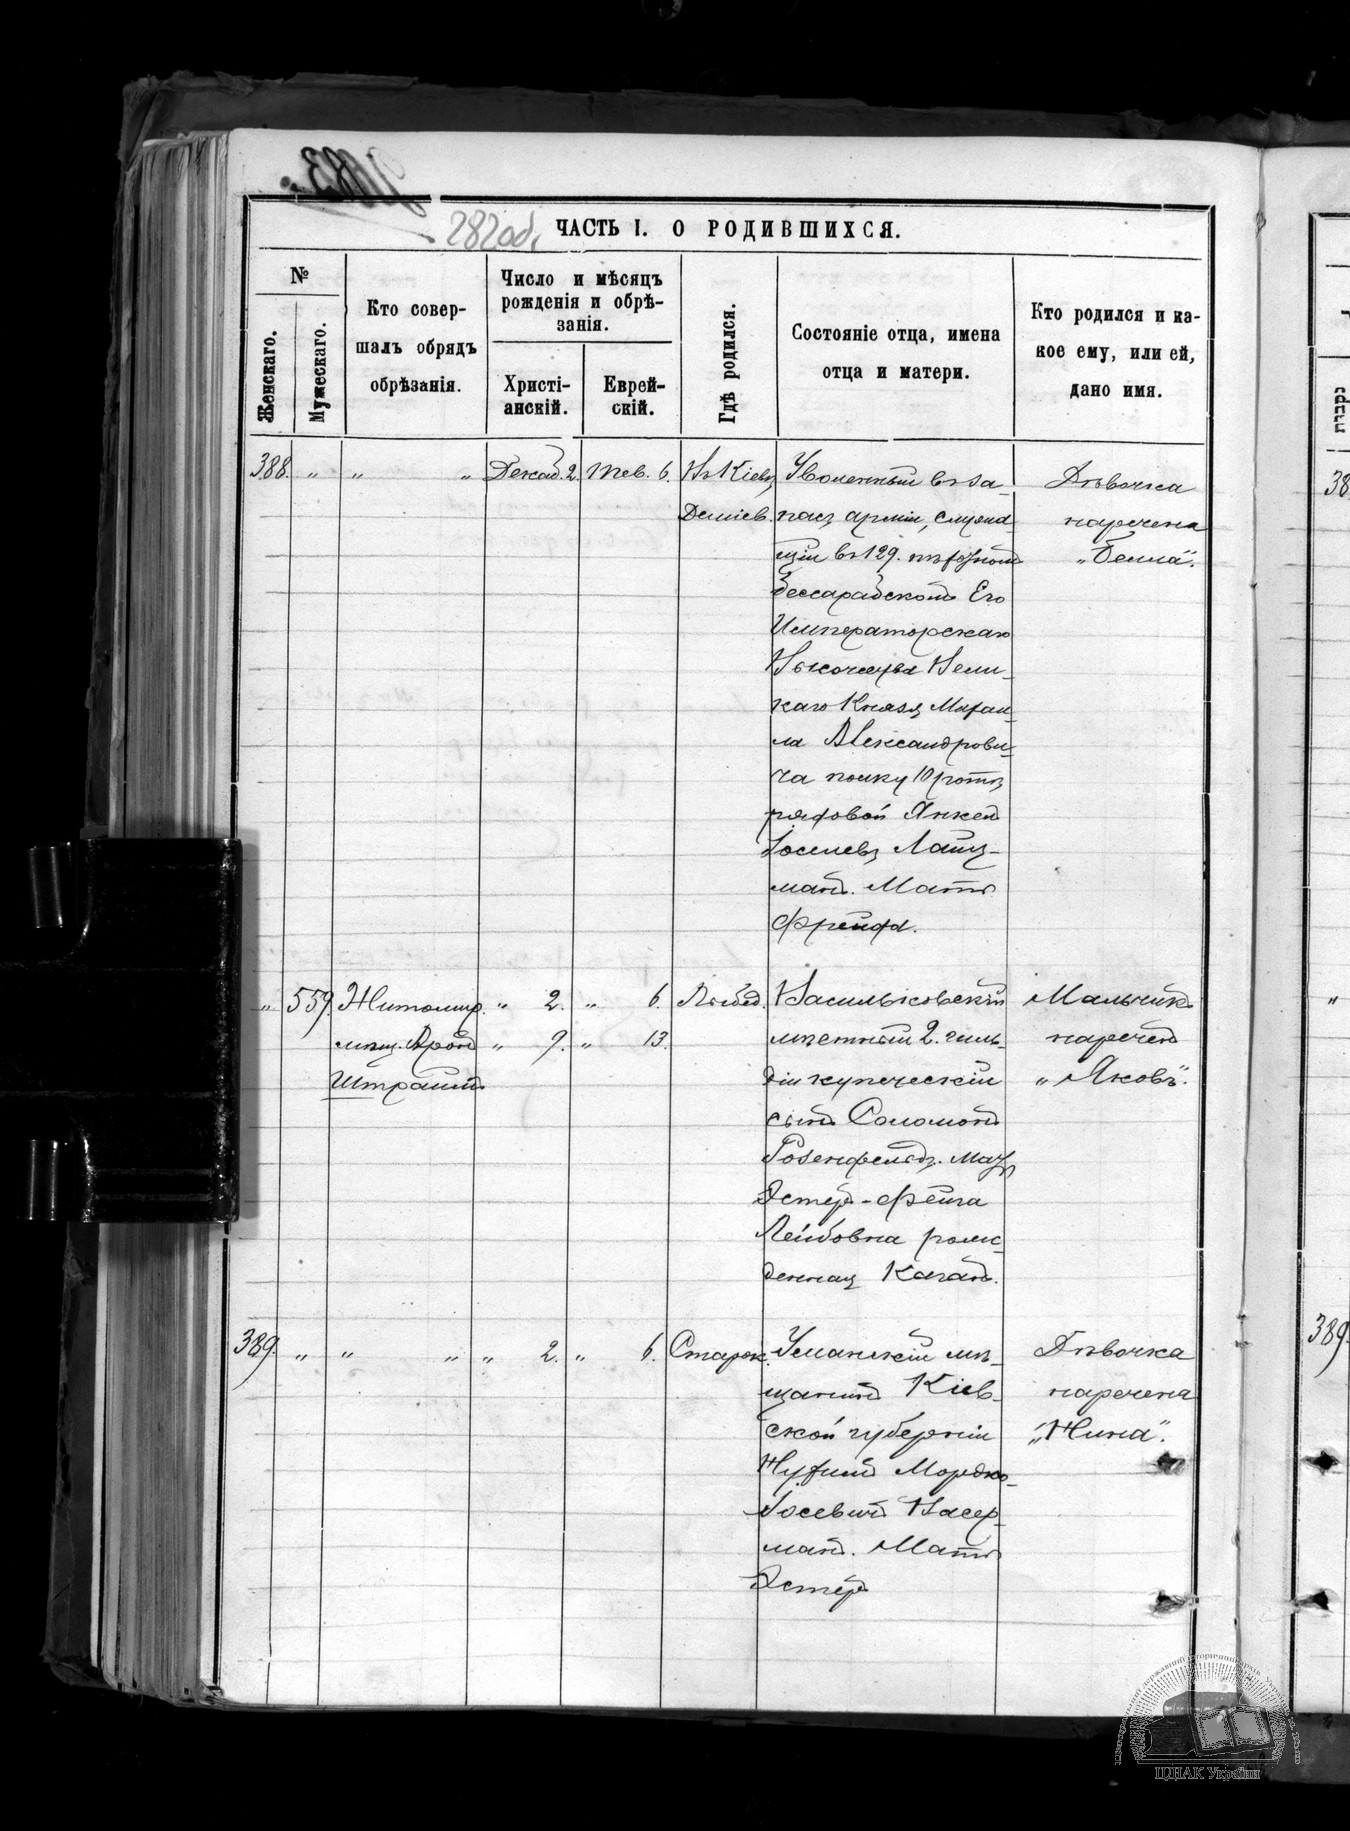 282об.
ЧАСТЬ I. О РОДИВШИХСЯ.
№
Женскаго.
Мужескаго.
Кто совер-
шалъ обрядъ
обрѣзанія.
Число и мѣсяцъ
рожденія и обрѣ-
занія.
Христі-
анскій.
Еврей-
скій.
Гдѣ родился.
Состояніе отца, имена
отца и матери.
Кто родился и ка-
кое ему, или ей,
дано имя.
388. " " " Декаб. 2. Тев. 6. Въ Кіевѣ
Деміев.
Уволенный въ за-
пасъ арміи, служа-
щій въ 129. пѣхотномъ
Бессарабскомъ Его
Императорскаго
Высочества Вели-
каго Князя Михаи-
ла Александрови-
ча полку 10 роты,
рядовой Янкель
Іоселевъ
манъ. Мать
Фрейда.
Дѣвочка
наречена
"Белла".
" 559 Житомир.
мѣщ. Аронъ
Штраймъ
" 2. " 6.
" 9. " 13.
Лыбед.
Васильковскій
мѣстный 2. гиль-
діи купеческій
сынъ Соломонъ
Розенфельдъ. Мать
Эстеръ-Фейга
Лейбовна рожд-
денная Каганъ.
Мальчикъ
нареченъ
"Яковъ".
389. " " " " 2. " 6. Старок.
Уманскій мѣ-
щанинъ Кіев-
ской губерніи
Нухимъ Мордко-
Іосевичъ Васер-
манъ. Мать
Эстеръ
Дѣвочка
наречена
"Нина".
38
"
389.
ЦДІАК України